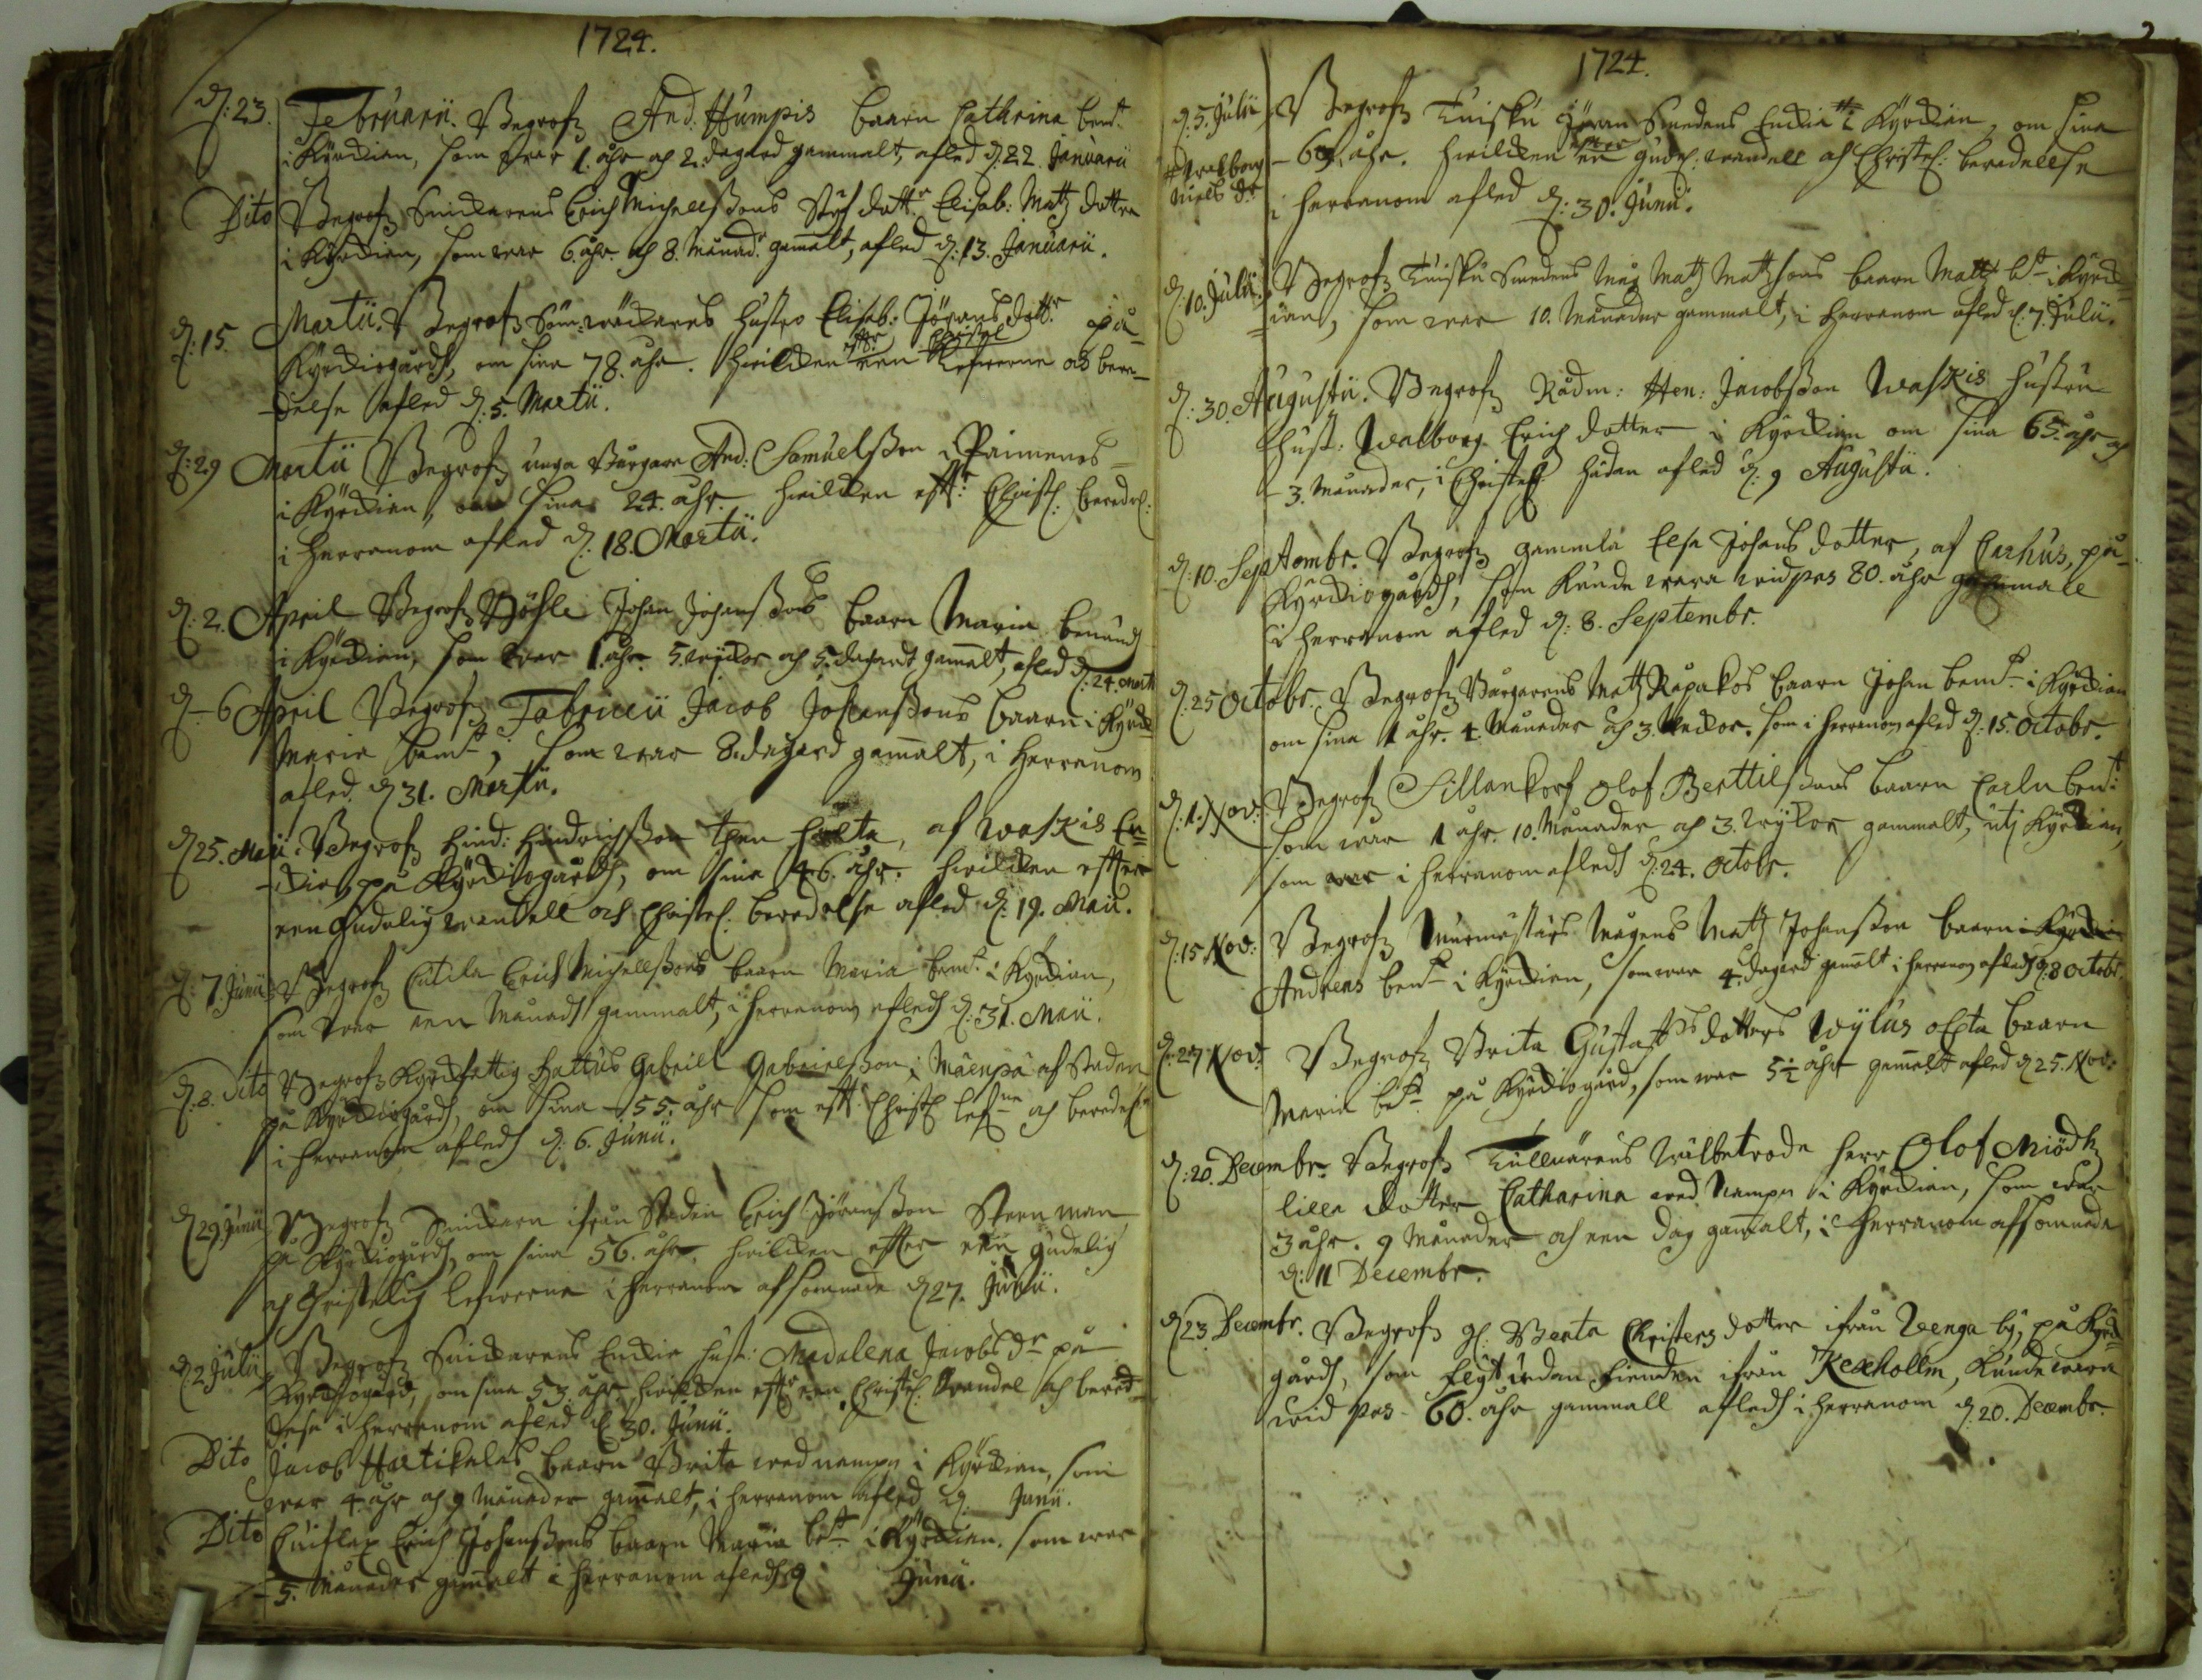 1724.
d: 23. Februarii. Begrofz And. Humpis baarn Cathrina bemt.
i Kyrckian, som war 1. åhr och 2. dagard gammalt, afled d. 22. Januarii
Dito Begrofz Snickarens Erich Michellßons dottr Elisab: Matz dotter
i Kyrckian, som war 6. åhr. och 8. Månadr gamalt, afled d: 13. Januarii.
d: 15. Martii. Begrofz hustro Elisab: Jörans dottr på
Kyrckiogårdh, om sina 78. åhr. hwilcken effter een Christel Lefwerne och bere-
delse afled d: 5. Martii.
d: 29 Martii Begrofz unga Borgare And: Samuelßon Paimenos
i Kyrckian, om sina 24. åhr. hwilcken efftr Christel: beredel:
i Herranom afled d: 18. Martii.
d: 2. April Begrofz Johan Johanßons baarn Maria benend
i Kyrckian, som war 1. åhr. 5. wyckor och 5. dagardt gamalt, afled d: 24. Marti
d. 6 April Begrofz Fabricii Jacob Johanßons baarn i Kyrck
Maria bemt, som war 8. dagard gamalt, i Herranom
afled d 31. Martii.
d 25. Maii. Begrofz Hind: Hindrichßon then halta, af Waskis En-
ckia, på Kyrckiogårdh, om sina 46. åhr. hwilcken effter
een gudelig wandell och Christel. beredelse afled d: 19. Maii.
d: 7. Junii Begrofz Cutila Erich Michellßons baarn Maria bemt. i Kyrckian,
som war een Månadh gammalt, i Herranom afledh d: 31. Maii.
d: 8. Dito Begrofz Kyrckfattig Gabriell Gabrielßon Mäenpä af Staden
på Kyrckiogårdh, om sina 55. åhr som efft Christel lefne och beredels
i Herranom afledh d: 6. Junii.
d 29 Junii Begrofz Snickaren ifrån Staden Erich Jöranßon Steenman
på Kyrckiogårdh, om sina 56. åhr. hwilcken effter een gudelig
och Christelig lefwerne i Herranom afsomnade d 27. Junii.
d 2 Julii Begrofz Snickarens Enckia hust: Madalena Jacobs dr på
Kyrckiogård, om sina 53. åhr hwilcken efftr een Christel. wandel och bered-
else i Herranom afled d 30. Junii.
Dito Jacob Hartikalas baarn Brita wed nampn i Kyrckian, som
war 4 åhr och 9 Månader gamalt, i Herranom afled d. Junii.
Dito Erich Johanßons baarn Maria bt i Kyrckian. som war
5. Månader gamalt i Herranom afledh d Junii.
1724.
d. 5. Julii Begrofz Tuisku Jöran Smedens Enckia # i Kyrckian, om sina
# Walborg
Niels dr
69. åhr. hwilcken effter en gudel. wandell och Christel: beredellse
i Herranom afled d: 30. Junii.
d: 10. Julii. Begrofz Tuisku Smedens Måg Matz Matzsons baarn Mattz bt i Kyrck-
ian, som war 10. Månader gammalt, i Herranom afled d. 7. Julii.
d: 30. Augustii. Begrofz Rådm: Hen: Jacobsson Waskis hustru
hust: Walborg Erich dotter i Kyrckian om sina 65. åhr och
3. Månader, i Christel hädan afled d: 9 Augustii.
d: 10. Septembr. Begrofz gammla Elsa Johans dotter, af Carhus, på
Kyrckiogårdh, som kunde wara widpas 80. åhr gammall
i Herranom afled d: 8. Septembr.
d. 25 Octobr. Begrofz Borgarens Matz Räpakos baarn Johan bemt i Kyrckian
om sina 1 åhr. 4. Månader och 3. Weckor. som i Herranom afled d: 15. Octobr.
d. 1. Nov: Begrofz Sillankorf Olof Berttilssons baarn Carln bent
som war 1 åhr. 10. Månader och 3. wyckor gammalt, uti Kyrckian,
som war i Herranom afledh d: 24. Octobr.
d: 15 Nov: Begrofz Murmästars Mågens Matz Johanßon baarn i Kyrcki
Andreas bemt i Kyrckian, som war 4. dagard gamalt i Herranom afledh d: 8 Octobr.
d: 27 Nov: Begrofz Brita Gustafs dotters Wylus baarn
Maria bt. på Kyrckiogård, som war 5½ åhr gamalt afled d 25. Nov:
d: 20. Decembr. Begrofz Tullnärens Wälbetrodde herr Olof Miödh
lilla dotter Catharina wed Nampn i Kyrckian, som war
3 åhr. 9 Månader och een dag gamalt, i Herranom afsomnade
d: 11 Decembr.
d 23 Decembr. Begrofz gl. Berta Christers dotter ifrån Wenga by, på Kyrck
gårdh, som flyt undan fienden ifrån Kexhollm, kunde wara
wid pas 60. åhr gammall afledh i Herranom d. 20. Decembr.